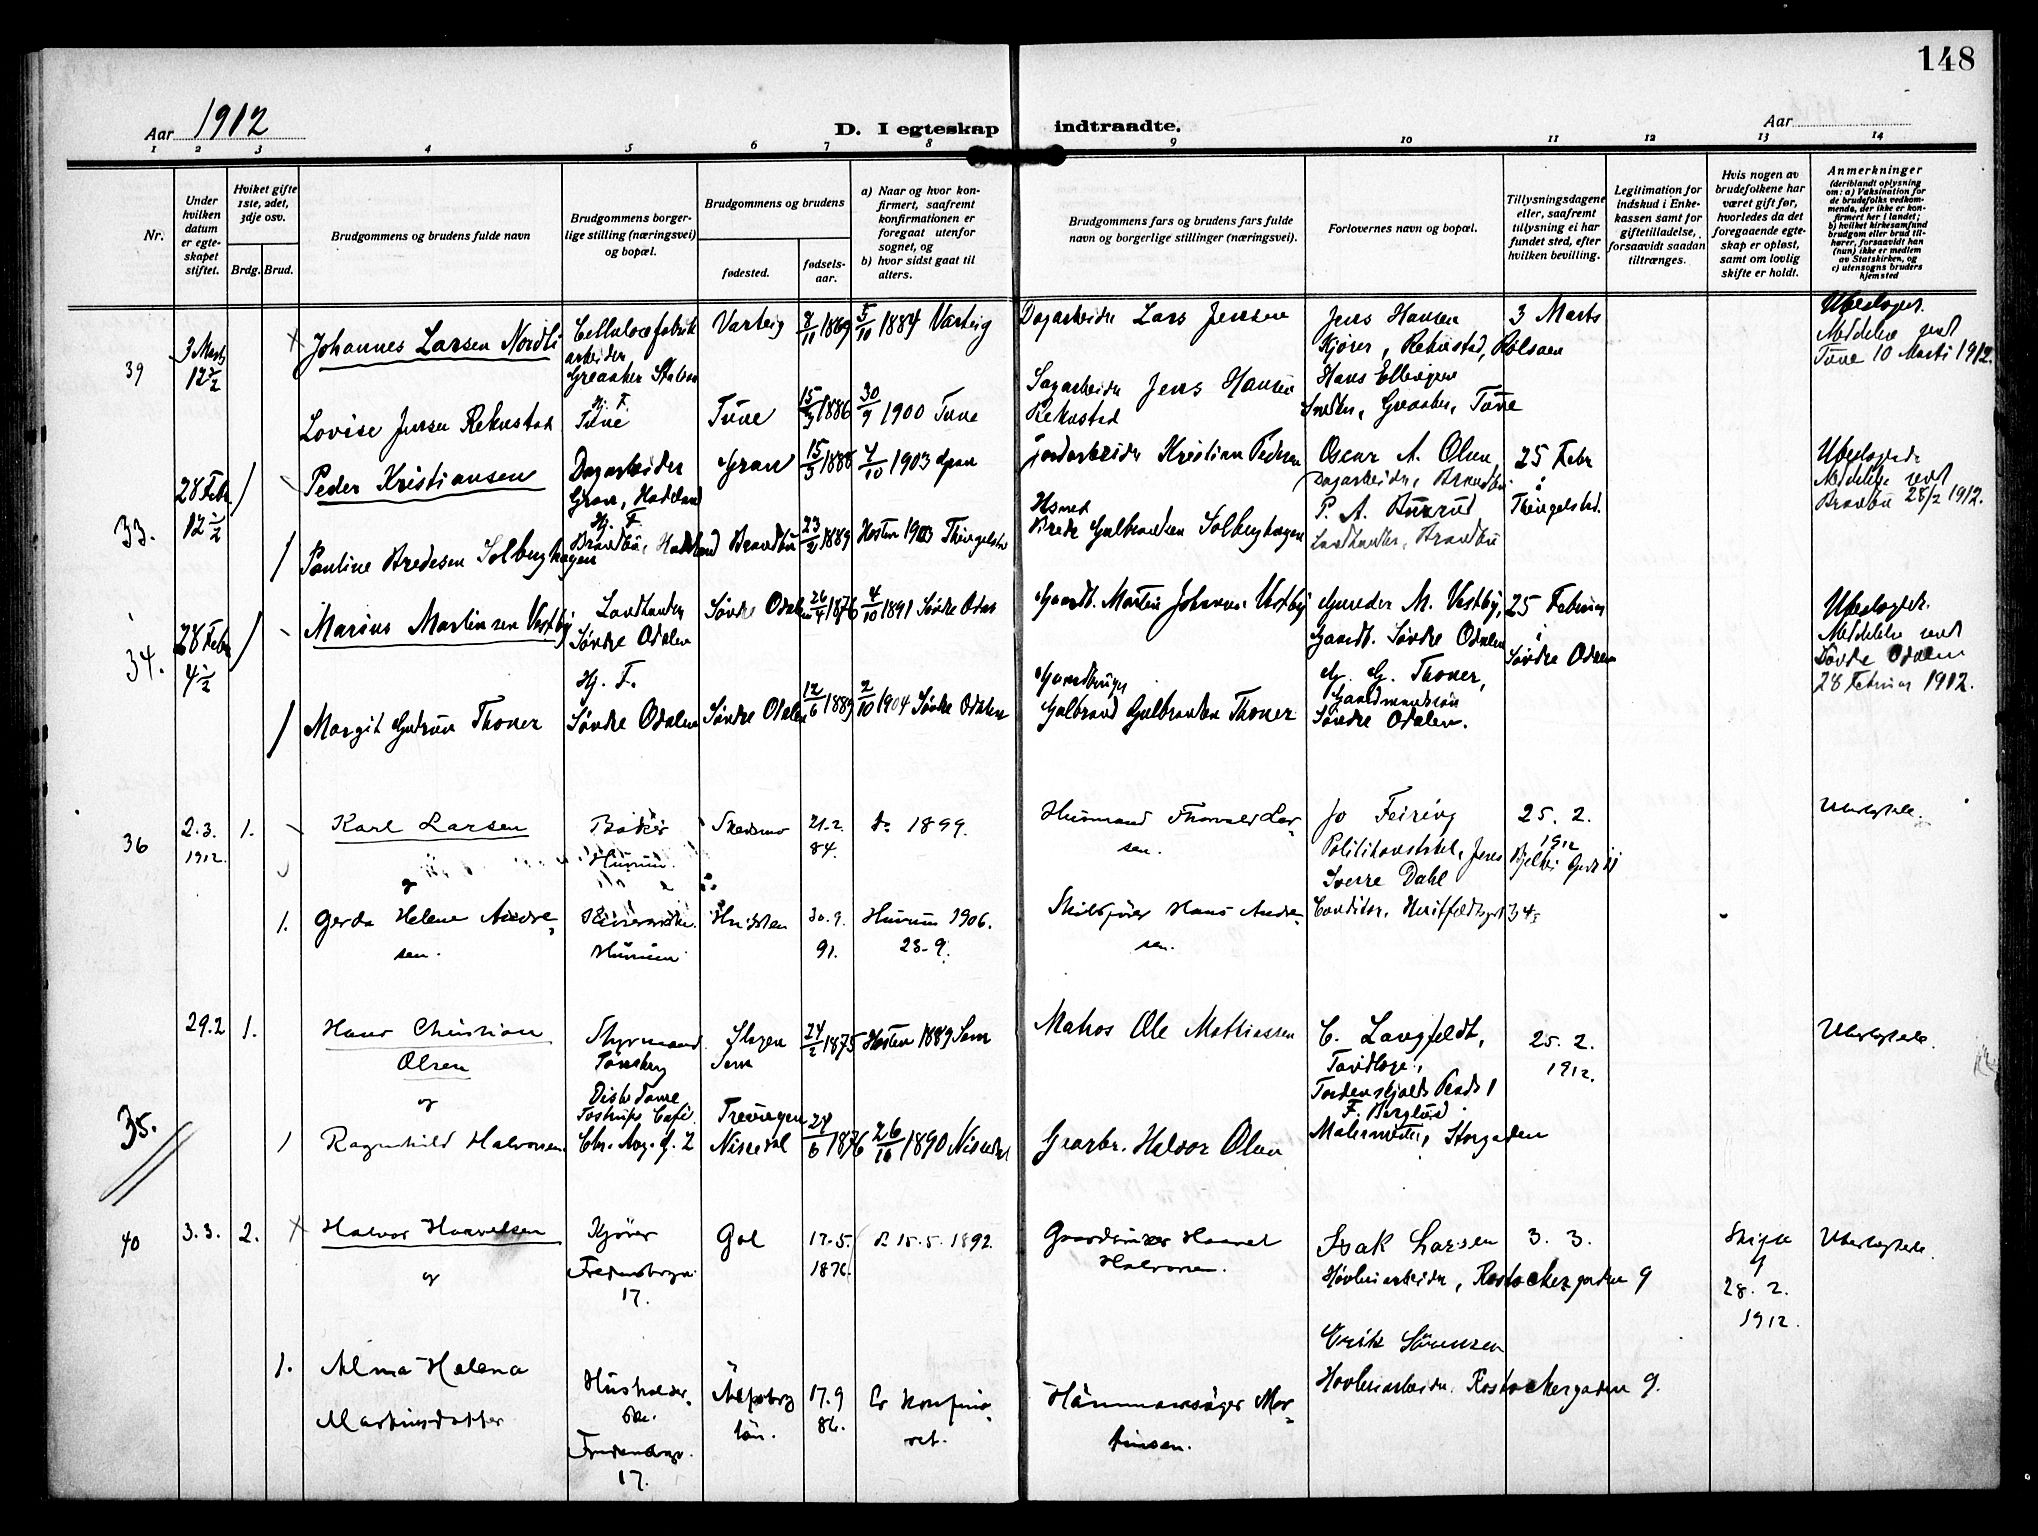 148
Aar 1912
D. I egteskap indtraadte.
Aar
1 2 3 4 5 6 7 8 9 10 11 12 13 14
Nr.
Under hvilken datum er egteskapet stiftet.
Hviket gifte 1ste, 2det, 3dje osv.
Brdg. Brud.
Brudgommens og brudens fulde navn
Brudgommens borgerlige stilling (næringsvei) og bopæl.
Brudgommens og brudens
fødested.
fødselsaar.
a) Naar og hvor konfirmert, saafremt konfirmationen er foregaat utenfor sognet, og
b) hvor sidst gaat til alters.
Brudgommens fars og brudens fars fulde navn og borgerlige stillinger (næringsvei).
Forlovernes navn og bopæl.
Tillysningsdagene eller, saafremt tillysning ei har fundet sted, efter hvilken bevilling.
Legitimation for indskud i Enkekassen samt for giftetilladelse, forsaavidt saadan tiltrænges.
Hvis nogen av brudefolkene har været gift før, hvorledes da det foregaaende egteskap er opløst, samt om lovlig skifte er holdt.
Anmerkninger
(deriblandt oplysning om: a) Vaksination for de brudefolks vedkommende, der ikke er konfirmert her i landet;
b) hvilket kirkesamfund brudgom eller brud tilhører, forsaavidt han (hun) ikke er medlem av Statskirken, og
c) utensogns bruders hjemsted
39
3 Marts
12 1/2
Johannes Larsen Nordli
Cellulosefabrik
arbeider
Greaaker Station
Varteig
8/11 1869
5/10 1884 Varteig
Dagarbeider Lars Jensen
Jens Hansen
Kjører, Rekustad,
3 Marts
Meddelse sendt
Tune 10 Marts 1912.
Lovise Jensen Rekustad
Hj. F.
Tune
Tune
15/9 1886
30/9 1900 Tune
Sagarbeider Jens Hansen
Rekustad
Hans Ellingsen
Snedker, Greaaker, Tune
33.
28 Febr
12 1/2
Peder Kristiansen
Dagarbeider
Gran, Hadeland
Gran
15/5 1888
4/10 1903 Gran
Jordarbeider Kristian Pedersen
Oscar A. Olsen
Dagarbeider, Brandbu
25 Febr
i
Thingelstad.
Meddelse sendt
Brandbu 28/2 1912.
Pauline Bredesen Solberghagen
Hj. F.
Brandbu, Hadeland
Brandbu
23/2 1889
Høsten 1903 Thingelstad
Brede Gulbrandsen Solberghagen
P. A. Buurud
Landhandler, Brandbu
34.
28 Febr
4 1/2
Marius Martinsen Vestby
Landhandler
Søndre Odalen
Søndre Odalen
26/4 1876
4/10 1891 Søndre Odal
Gaardb. Martin Johannes Vestby
Gunder M. Vestby,
Gaardb. Søndre Odalen
25 Februar
i
Søndre Odalen
Meddelse sendt
Søndre Odalen
28 Februar 1912.
Margit Gudrun Thoner
Hj. F.
Søndre Odalen
Søndre Odalen
12/6 1889
2/10 1904 Søndre Odalen
Gaardbruger
Gulbrand Gulbrandsen Thoner
G. G. Thoner,
Gaardmandssøn
Søndre Odalen.
36
2.3.
1912.
1.
Karl Larsen
og
Hurum.
Skedsmo
21.2.
84.
do 1899.
Husmand Thorvald Larsen.
Jo Feiring
Politikonstabel, Jens
Bjelkes Gade 11
25. 2.
1912
1.
Gerda Helene Andresen.
Hurum
30.9.
91.
Hurum 1906.
23-9.
Skibsfører Hans Andresen.
Sverre Dahl
Conditor,
35.
29.2
1.
Hans Christian
Olsen
og
Styrmand
Tønsberg
Slagen
Sem
24/2 1875
Høsten 1889 Sem
Matros Ole Mathiassen
C. Langfeldt,
Tordenskjolds Plads 1
25. 2.
1912.
1
Ragnhild Halvorsen
Diskedame
Tostrups Café.
Chr. Aug. g. 2
Treungen
Nissedal
1876
26/10 1890 Nissedal
Gaarbr. Halvor Olsen
F. Berglund
Malermester, Storgaden
40
3.3.
2.
Halvor Haavelsen
og
Kjører
17.
Gol
17.5.
1876.
15.5. 1892.
Gaardbruger Haavel
Halvorsen.
Isak Larsen
Høvleriarbeider, Rostockergaden 9
3. 3.
Skifte
28. 2.
1912.
1.
Alma Helena
Martinsdatter
Husholderske.
17.
Älfsborg
län.
17.9
86.
Er konfirmeret.
Martinsen.
Erik Sörensen
Høvleriarbeider. Rostockergaden 9.